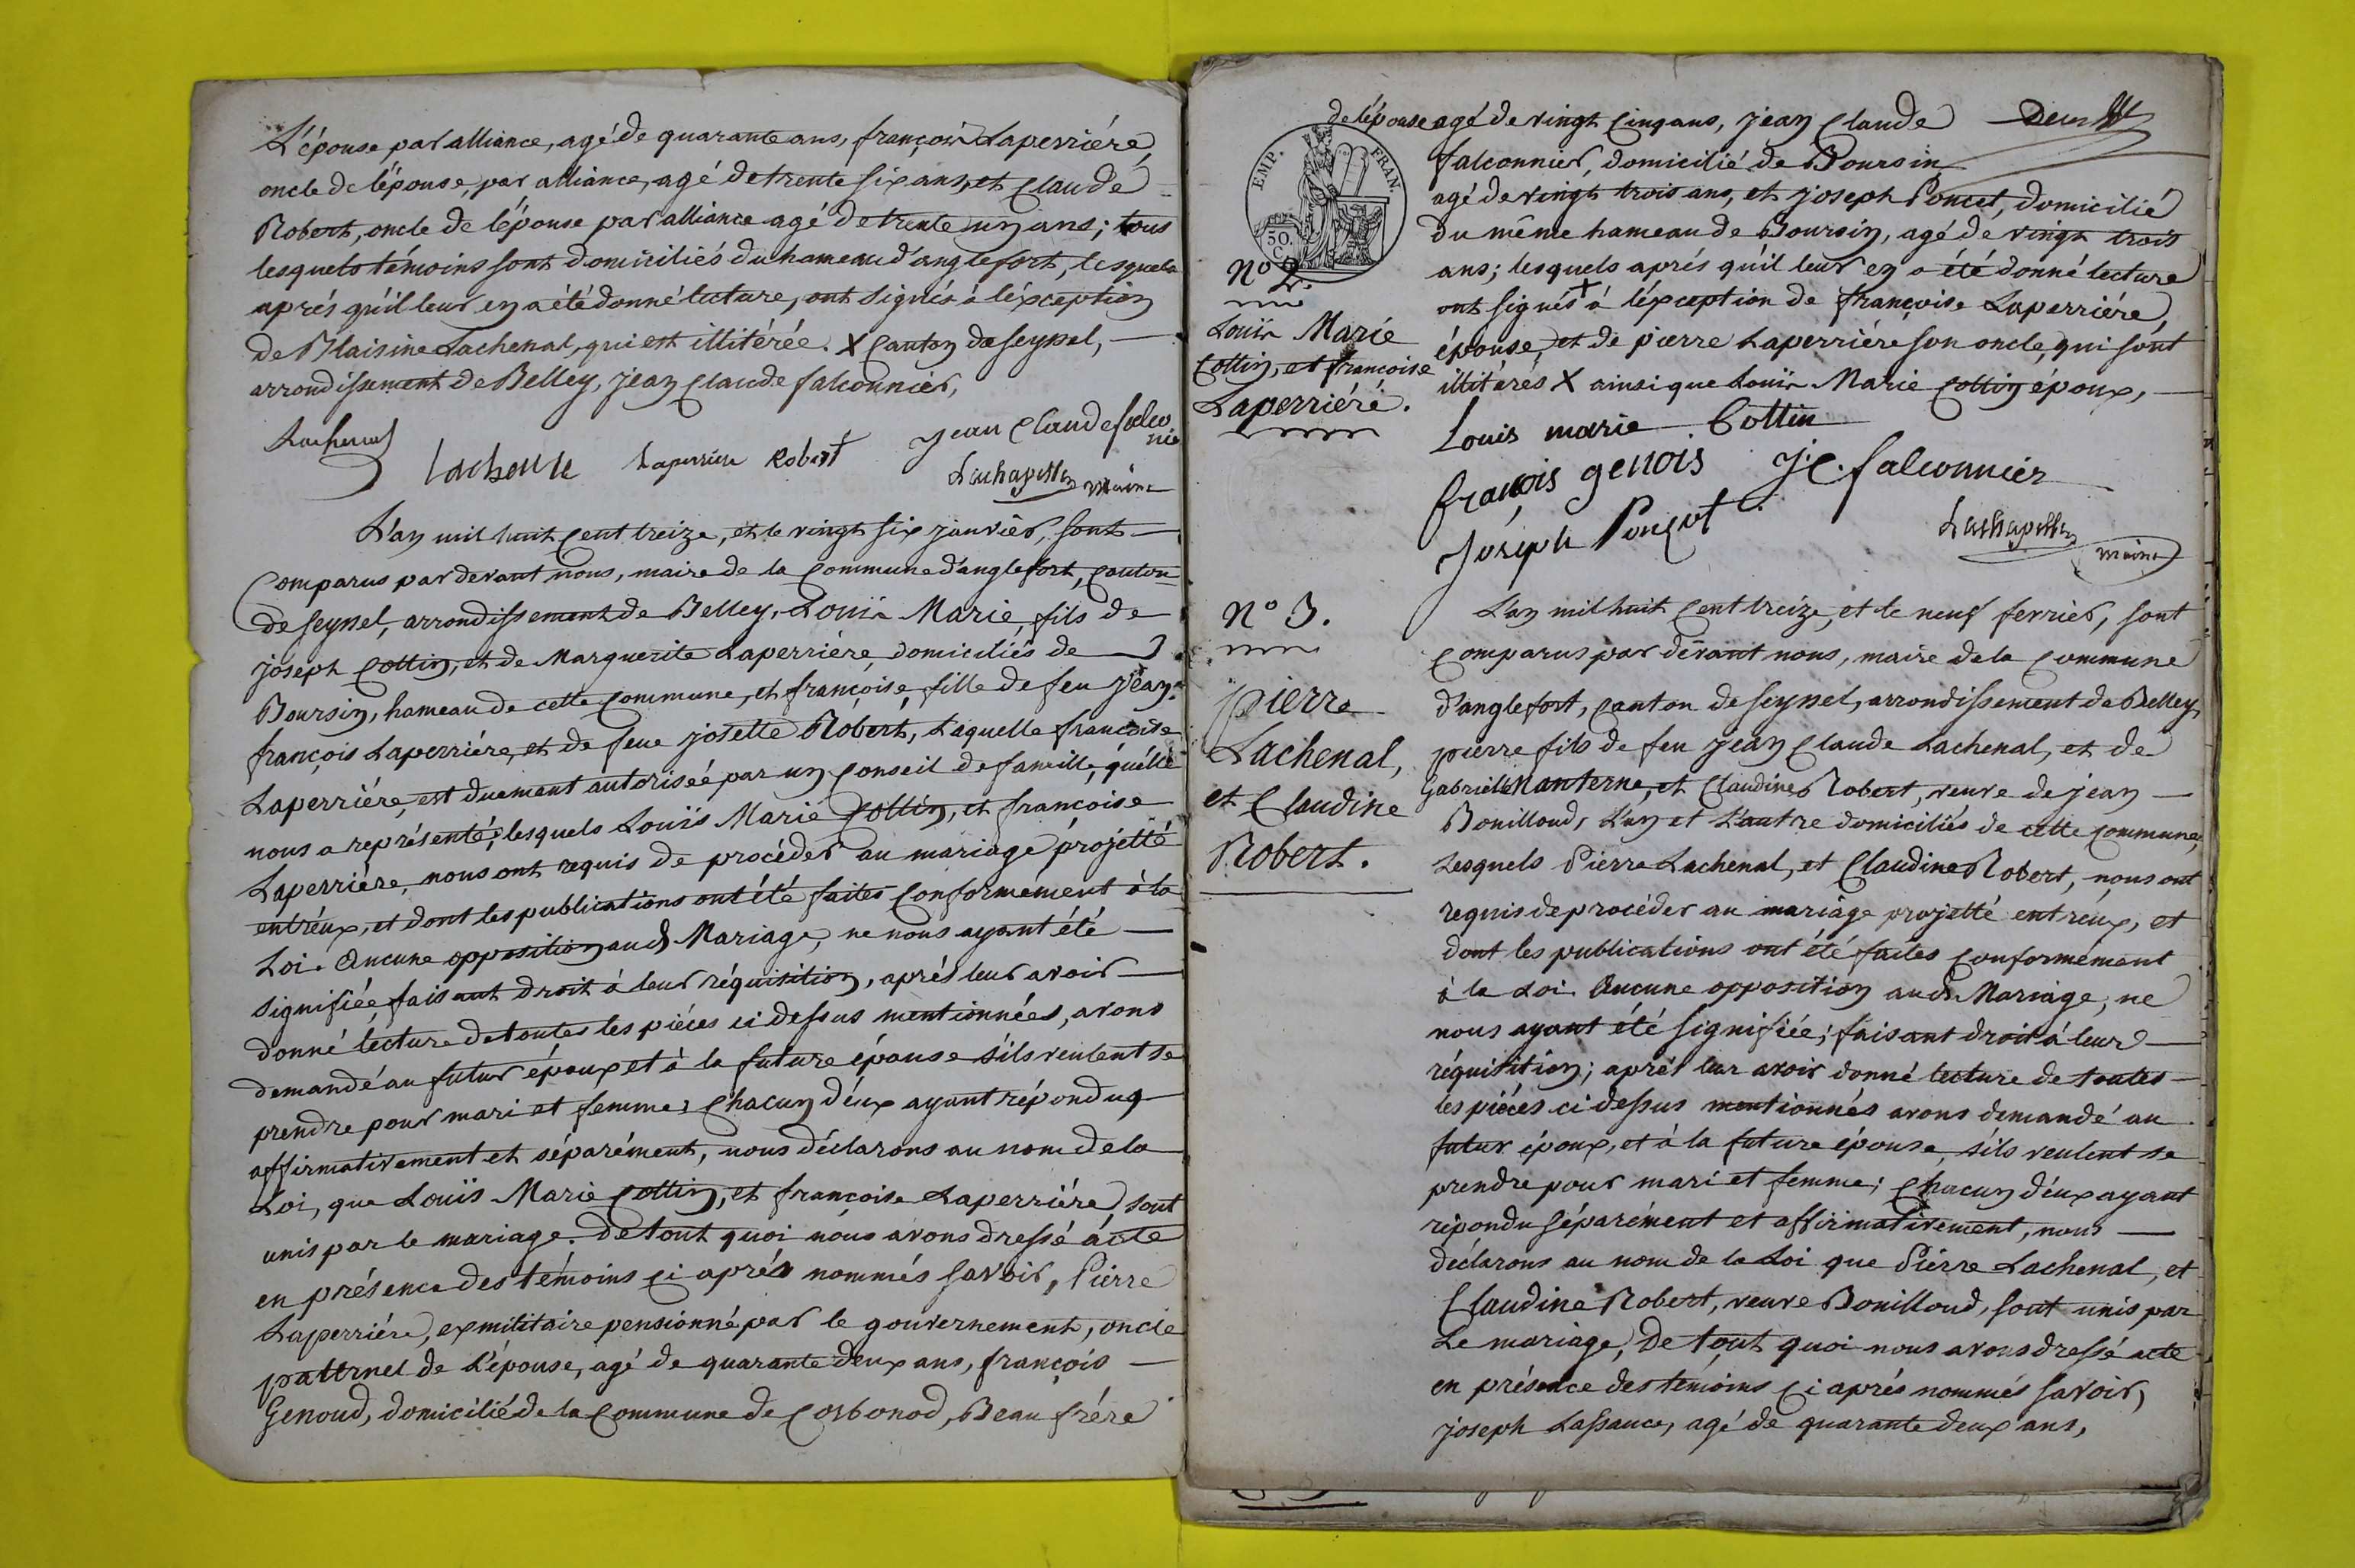 L'épouse par alliance, agé de quarante ans, françois Laperriére,
oncle de l'épouse, par alliance, agé de trente six ans, et Claude
Robert, oncle de l'épouse par alliance agé de trente un ans; tous
lesquels témoins sont domiciliés du hameau d'anglefort, lesquels
aprés qu'il leur en a été donné lecture, ont signés à l'éxception
de Blaisine Lachenal, qui est illitérée. X Canton de seyssel,
arrondissement de Belley, jean Claude falconnier,
Lachenal
Laperriere Robert
jean Claude falco
nie
Lachapelle maire
L'an mil huit Cent treize, et le vingt six janvier, sont
Comparus par devant nous, maire de la Commune d'anglefort, Canton
de seyssel, arrondissement de Belley, Louis Marie, fils de
joseph Cottin, et de Marguerite Laperriére, domiciliés de
Boursin, hameau de cette Commune, et françoise, fille de feu jean
françois Laperriére, et de feue josette Robert, Laquelle françoise
Laperriére, est duement autoriseé par un Conseil de famille, qu'éllé
nous a représenté; lesquels Louïs Marie Cottin, et françoise
Laperriére, nous ont requis de procéder au mariage projetté
entréux, et dont les publications ont été faites Conformément à la
Loi. Aucune opposition aud. Mariage, ne nous ayant été
signifiée, faisant droit à leur réquisition, aprés leur avoir
donné lecture de toutes les piéces ci dessus mentionnées, avons
demandé au futur époux et à la future épouse s'ils veulent se
prendre pour mari et femme; Chacun d'eux ayant répondu
affirmativement et séparément, nous déclarons au nom de la
Loi, que Louïs Marie Cottin, et françoise Laperriére, sont
unis par le mariage. De tout quoi nous avons dressé acte
en présence des témoins Ci aprés nommés savoir, Pierre
Laperriére, exmilitaire pensionné par le gouvernement, oncle
paternel de L'épouse, agé de quarante deux ans, françois
Genoud, domicilié de la Commune de Corbonod, Beau frére
de l'épouse agé de vingt Cinq ans, jean Claude
falconnier, domicilié de Boursin
agé de vingt trois ans, et joseph Poncet, domicilié
du même hameau de Boursin, agé de vingt trois
ans; lesquels aprés qu'il leur en a été donné lecture
ont signés X à l'éxception de françoise Laperriére,
épouse, et de pierre Laperriére son oncle, qui sont
illitérés X ainsi que Louïs Marie Cottin époux,
EMP. FRAN.
50.
C.
N° 2.
Louïs Marie
Cottin, et françoise
Laperriére.
Louis marie Cottin
françois genois J.C. falconnier
Joseph Ponçet
Lachapelle maire
N° 3.
pierre
Lachenal,
et Claudine
Robert.
L'an mil huit Cent treize, et le neuf fevrier, sont
Comparus par dévant nous, maire de la Commune
d'anglefort, Canton de seyssel, arrondissement de Belley,
pierre fils de feu jean Claude Lachenal, et de
Gabrielle Manterne, et Claudine Robert, veuve de jean
Bouilloud, L'un et L'autre domiciliés de cette Commune,
Lesquels Pierre Lachenal, et Claudine Robert, nous ont
requis de procéder au mariage projetté entréux, et
dont les publications ont été faites Conformément
à la Loi. Aucune opposition aud. Mariage, ne
nous ayant été signifiée; faisant droit à leur
réquisition; aprés leur avoir donné lecture de toutes
les piéces ci dessus mentionnés avons demandé au
futur époux, et à la future épouse, s'ils veulent se
prendre pour mari et femme; Chacun d'eux ayant
répondu séparément et affirmativement, nous
déclarons au nom de la Loi que Pierre Lachenal, et
Claudine Robert, veuve Bouilloud, sont unis par
Le mariage, De tout quoi nous avons dressé acte
en présence des témoins Ci aprés nommés savoir,
joseph Lassauce, agé de quarante deux ans,